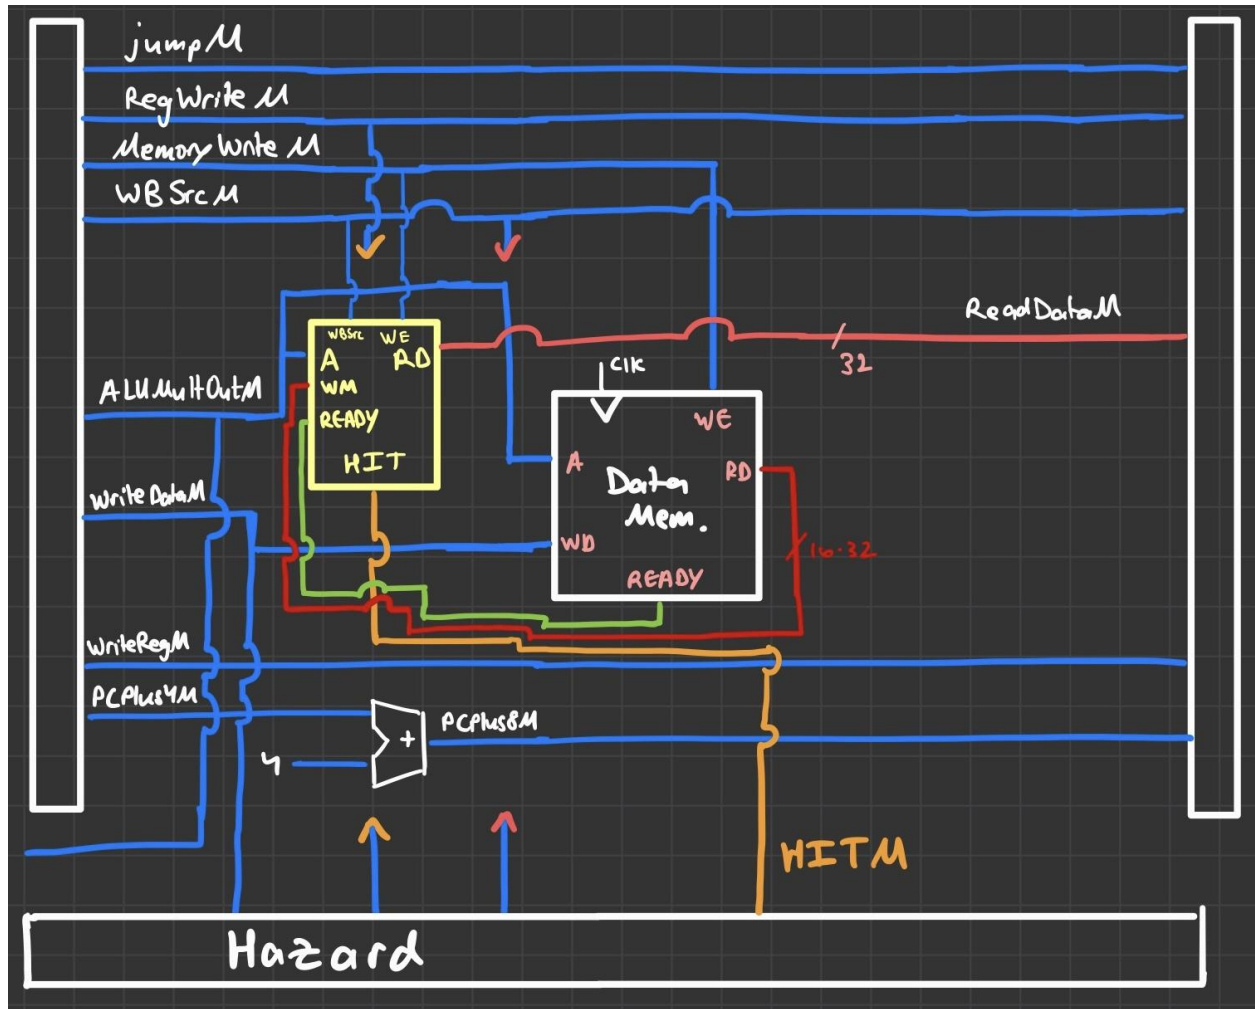 jumpM
RegWriteM
MemoryWriteM
WBSrcM
ReadDataM
32
WBSrc WE
A RD
WM
READY
HIT
ALUMultOutM
Clk
WE
A
RD
Data
Mem.
WD
READY
16·32
WriteDataM
WriteRegM
PCPlus4M
PCPlus8M
+
4
HITM
Hazard